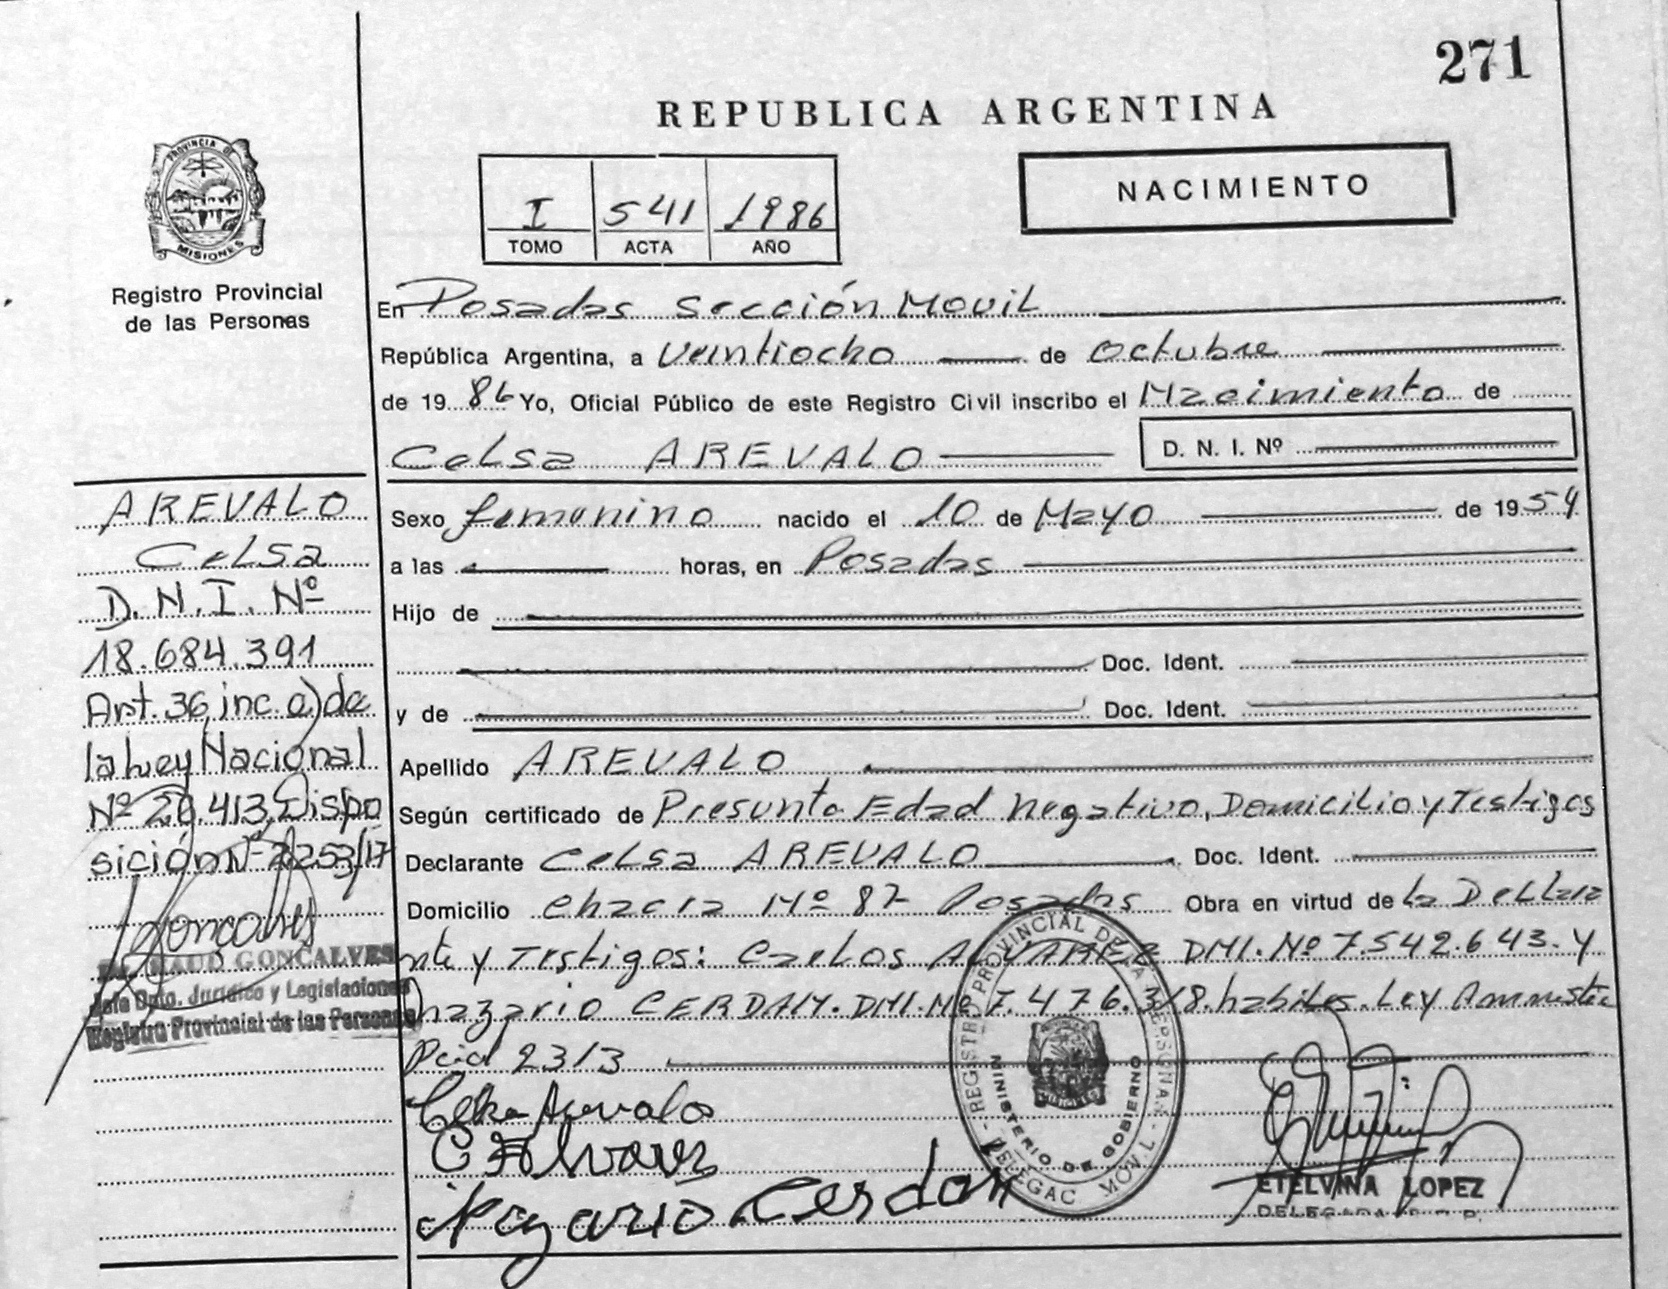 271
REPUBLICA ARGENTINA
PROVINCIA DE
MISIONES
Registro Provincial
de las Personas
I 541 1986
TOMO ACTA AÑO
NACIMIENTO
En Posadas Sección Movil
República Argentina, a Veintiocho de Octubre
de 1986 Yo, Oficial Público de este Registro Civil inscribo el Nacimiento de
Celsa AREVALO D. N. I. Nº
Sexo femenino nacido el 10 de Mayo de 1954
a las horas, en Posadas
Hijo de
Doc. Ident.
y de Doc. Ident.
Apellido AREVALO
Según certificado de Presunta Edad Negativo, Domicilio y Testigos
Declarante Celsa AREVALO Doc. Ident.
Domicilio Chacra Nº 87 Posadas Obra en virtud de la Declara
nte y Testigos: Carlos ALVAREZ DMI. Nº 7.542.643. y
Nazzario CERDAN. DMI. Nº 7.476.318. habiles. Ley Amnistia
Pcial 2313
Celsa Arevalo
C Alvarez
Nazario Cerdan
AREVALO
Celsa
D. N. I. Nº
18.684.391
Art. 36, inc. a) de
la Ley Nacional
Nº 26.413, Dispo
sición Nº 2253/17
Goncalves
RAUD GONCALVES
Jefe Dpto. Jurídico y Legislaciones
Registro Provincial de las Personas
REGISTRO PROVINCIAL DE LAS PERSONAS
MINISTERIO DE GOBIERNO
DELEGAC MOVIL
ETELVINA LOPEZ
DELEGADA